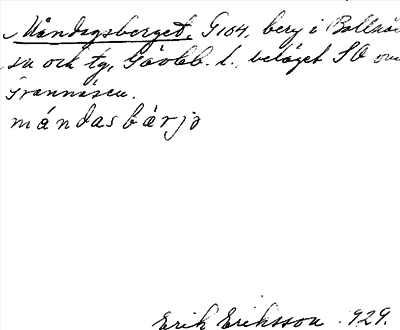 Måndagsbergeț, G104, berg i Bollnäs
sn och tg, Gävlb. l., beläget SO om
Grannäsen.
måndasbärjə
Erik Eriksson 1929.